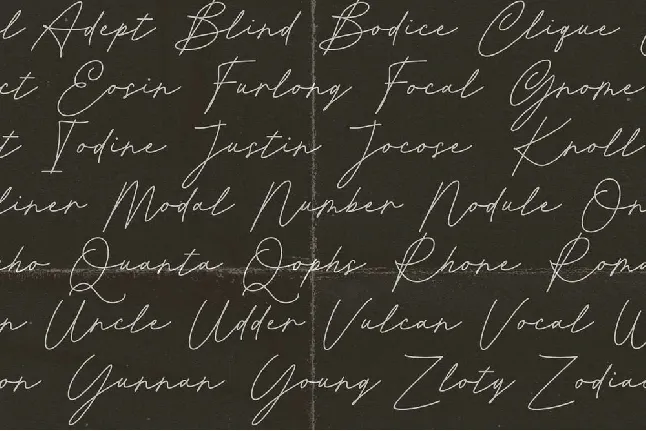 l Adept Blind Bodice Clique
ct Eosin Furlong Focal Gnome
t Iodine Justin Jocose Knoll
liner Modal Number Nodule On
cho Quanta Qophs Rhone Roma
n Uncle Udder Vulcan Vocal W
on Yunnan Young Zloty Zodiac